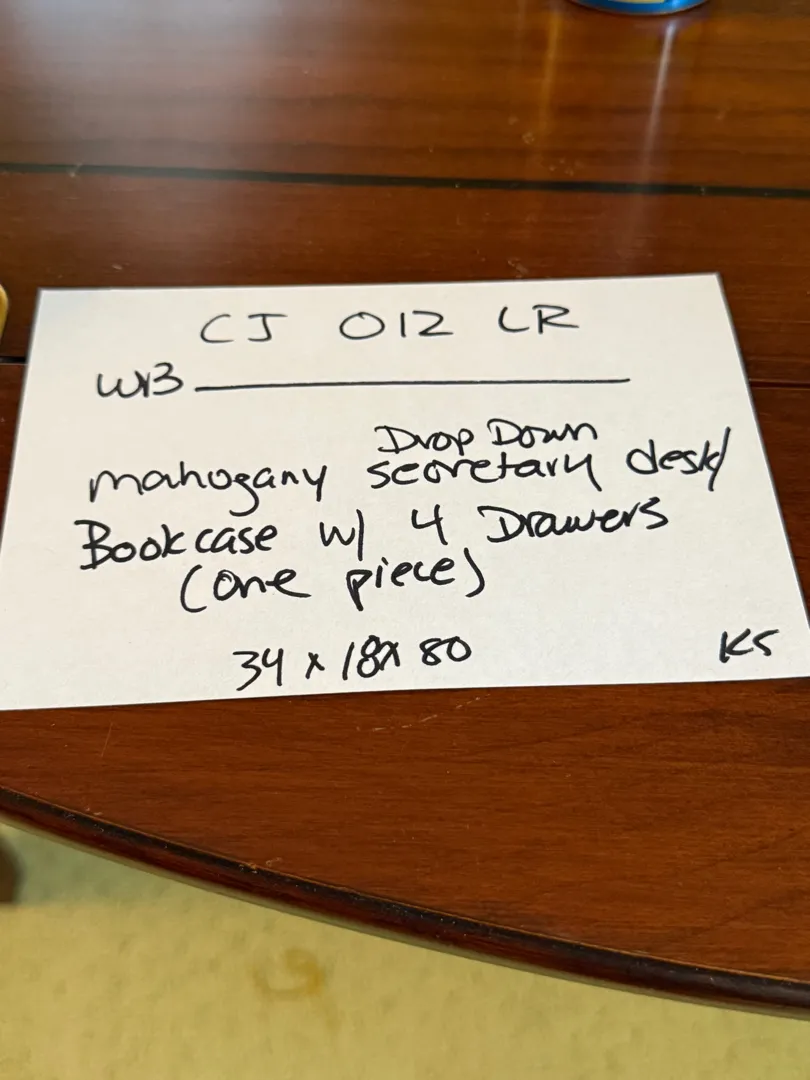 CJ 012 LR
WB
Drop Down
mahogany secretary desk/
Bookcase w/ 4 Drawers
(one piece)
34 x 18 x 80
KS